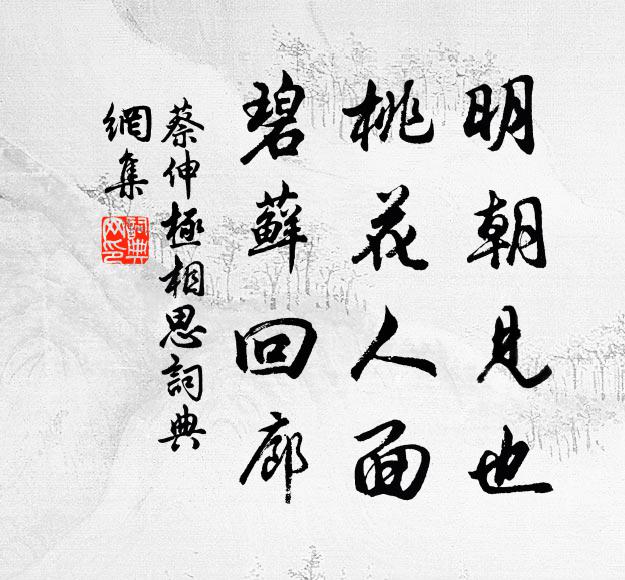 明朝見也
桃花人面
碧蘚回廊
蔡伸極相思詞典
網集
詞典
网印